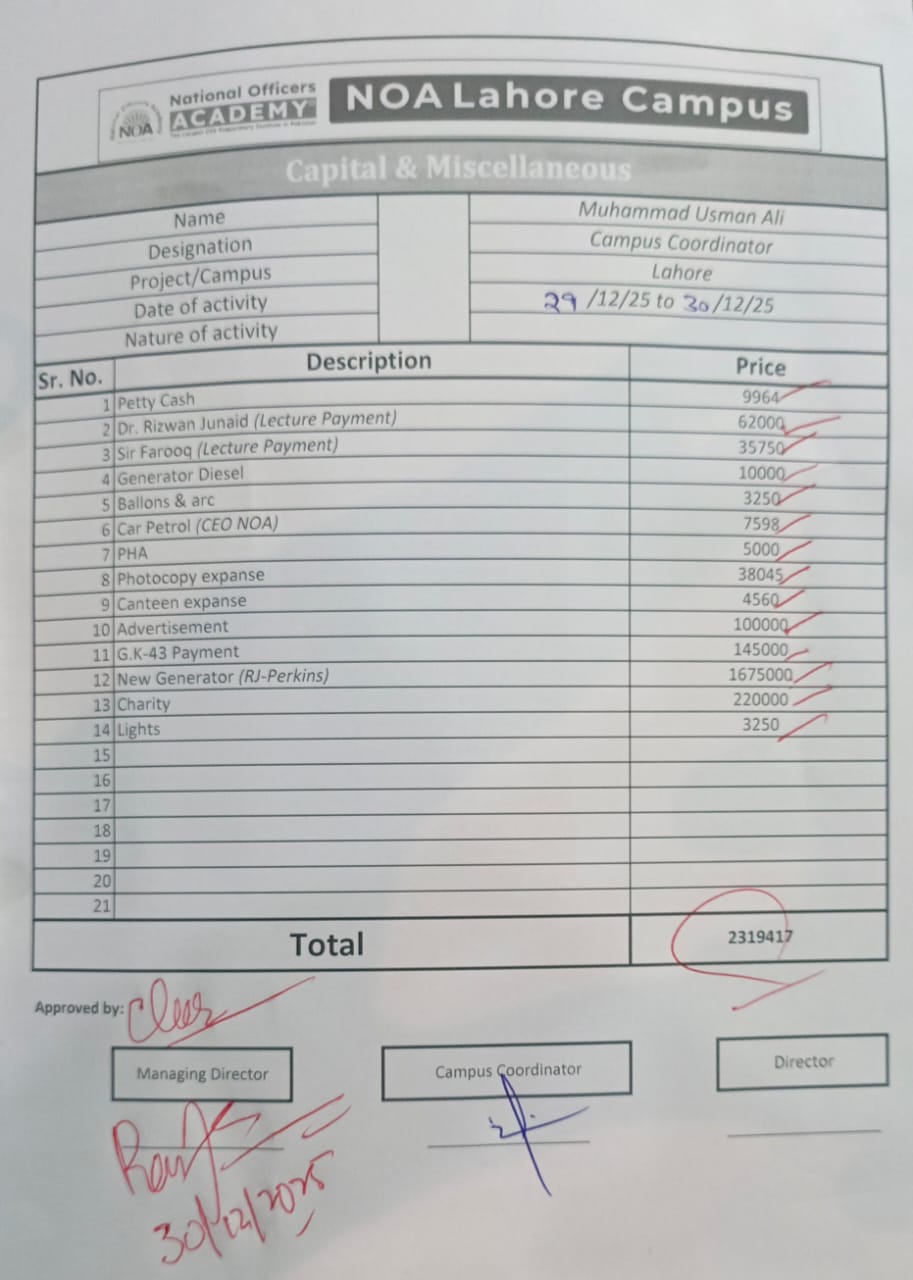 National Officers
ACADEMY
NOA
NOA Lahore Campus
Capital & Miscellaneous
Name Muhammad Usman Ali
Designation Campus Coordinator
Project/Campus Lahore
Date of activity 29/12/25 to 30/12/25
Nature of activity
Sr. No. Description Price
1 Petty Cash 9964
2 Dr. Rizwan Junaid (Lecture Payment) 62000
3 Sir Farooq (Lecture Payment) 35750
4 Generator Diesel 10000
5 Ballons & arc 3250
6 Car Petrol (CEO NOA) 7598
7 PHA 5000
8 Photocopy expanse 38045
9 Canteen expanse 4560
10 Advertisement 100000
11 G.K-43 Payment 145000
12 New Generator (RJ-Perkins) 1675000
13 Charity 220000
14 Lights 3250
15
16
17
18
19
20
21
Total 2319417
Approved by: Clear
Managing Director Campus Coordinator Director
30/12/2025